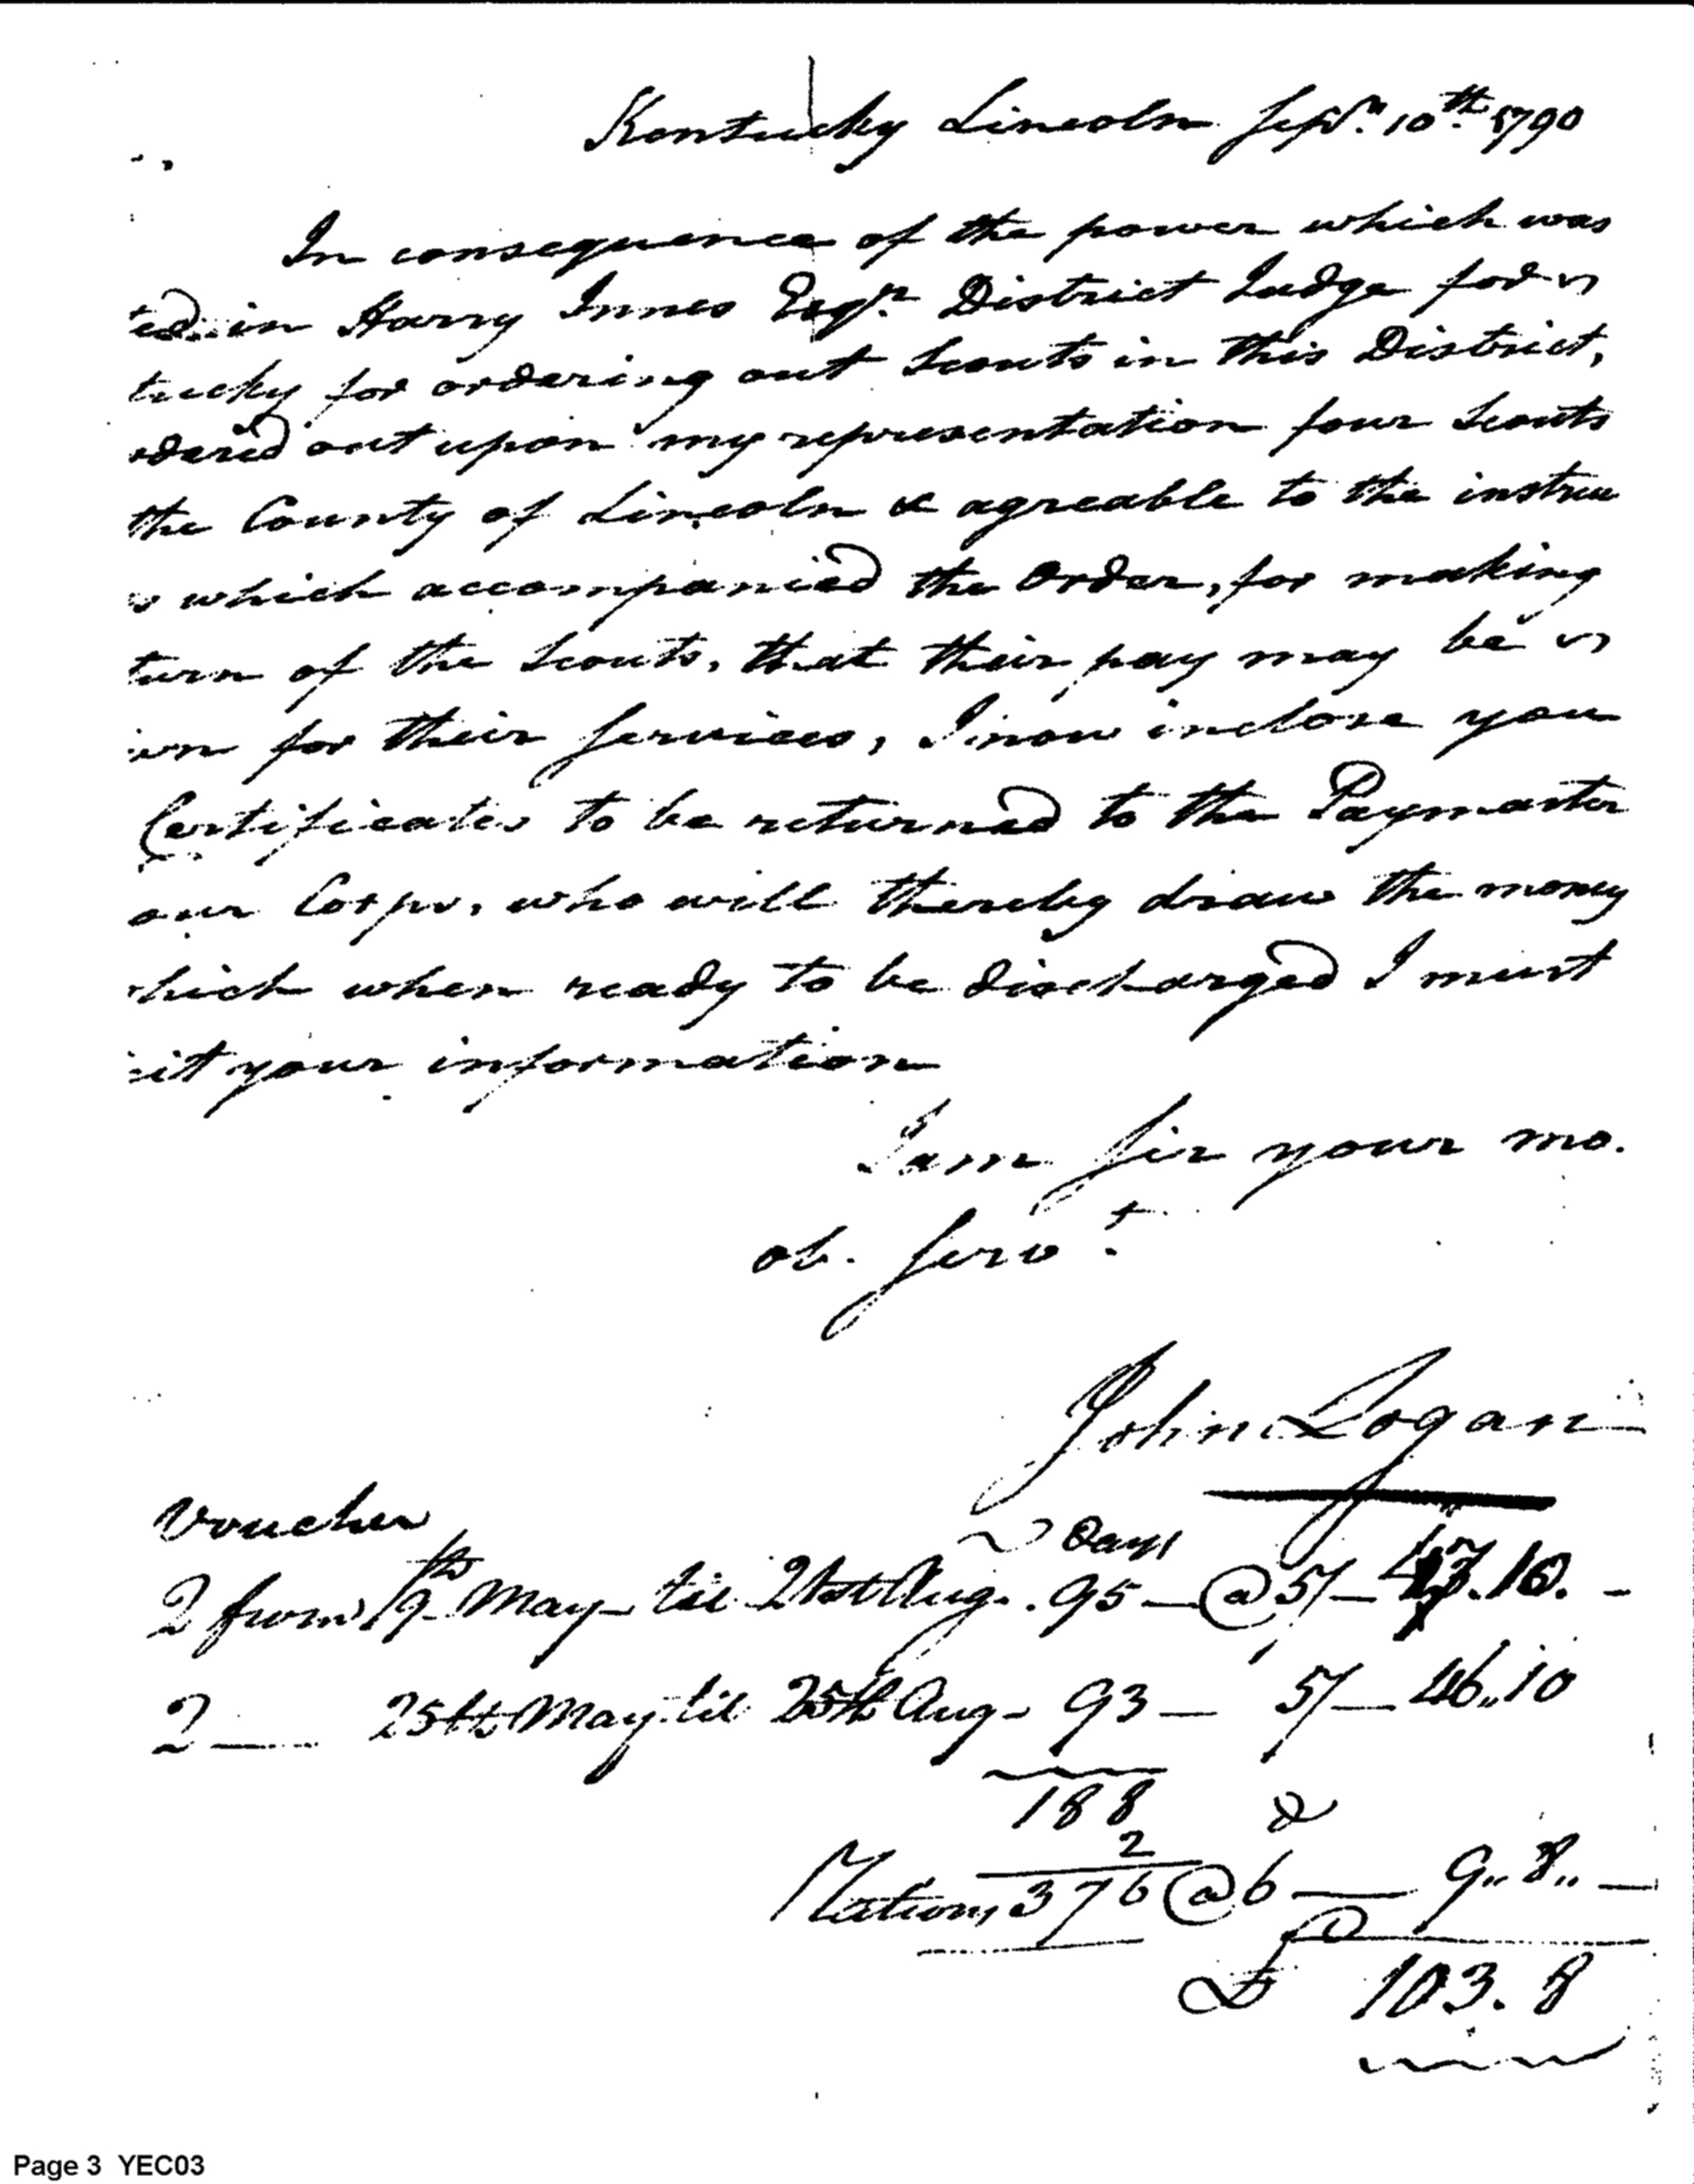 Kentucky Lincoln Sepr. 10th. 1790
In consequence of the power which was
ed in Harry Innes Esqr. District Judge for
tucky for ordering out Scouts in this District,
dered out upon my representation four Scouts
the County of Lincoln & agreable to the instruc
s which accompanied the Order, for making
turn of the Scouts, that their pay may be
wn for their Services, I now inclose you
Certificates to be returned to the Paymaster
our Corps, who will thereby draw the money
hich when ready to be discharged I must
it your information
I am Sir your mo.
ob. Servt.
John Logan
Voucher
Days
2 from 19th May til 21st Aug. 95 — @ 5/ — 47.10. -
2 — 25th May til 25th Aug - 93 — 5/ — 46,,10
188
2 d
Rations 376 @ 6 — 9,, 8,, —
£ 103. 8
Page 3 YEC03